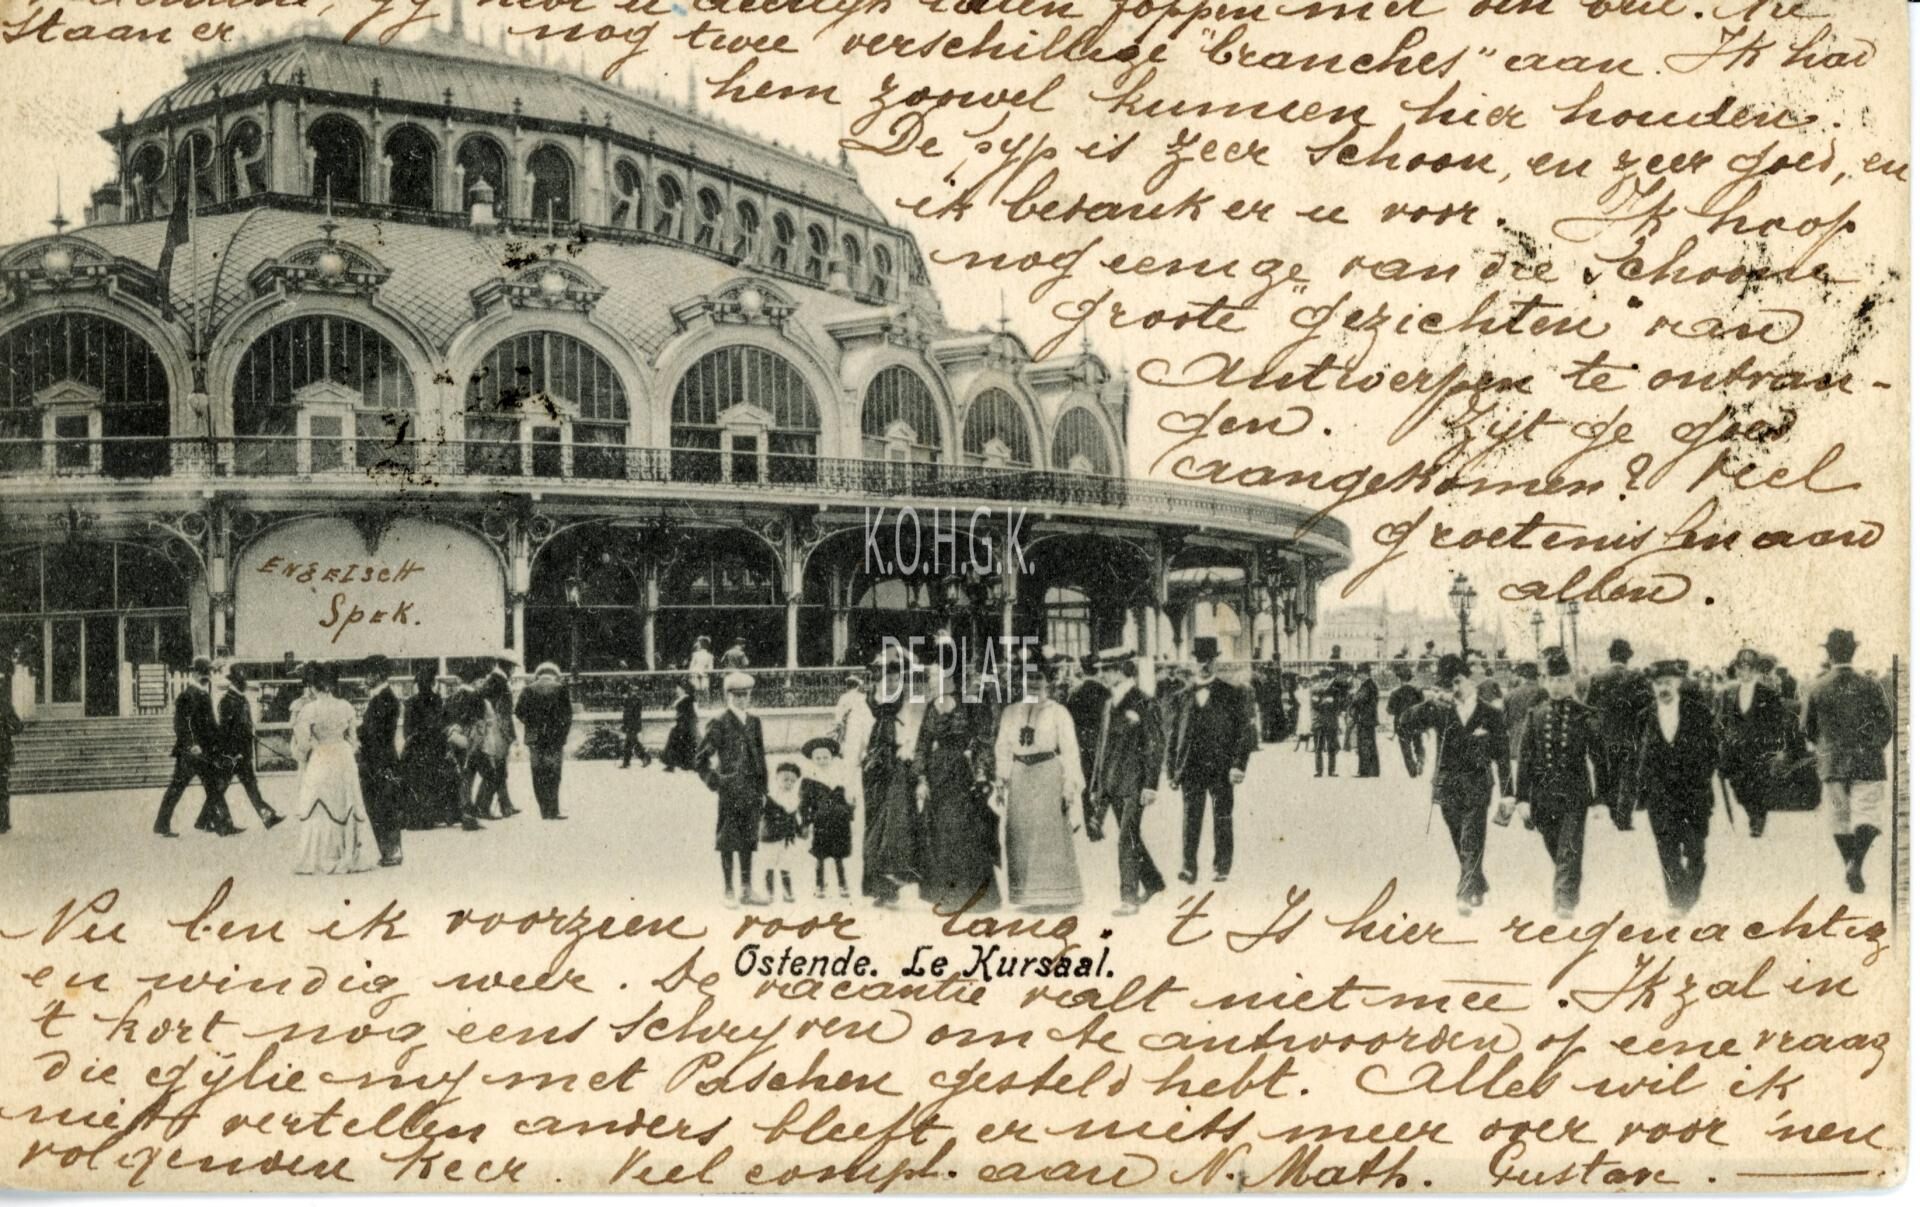 gy hebt u deerlijk laten foppen met den bril. Nu
staan er nog twee verschillige "branches" aan. Ik had
hem zoowel kunnen hier houden.
De pyp is zeer schoon, en zeer goed, en
ik bedank er u voor. Ik hoop
nog eenige van die schoone
groote "gezichten" van
Antwerpen te ontvan-
gen. Zyt ge goed
aangekomen? Veel
groetenissen aan
allen.
ENGELSCH
SPEK.
K.O.H.G.K.
DE PLATE
Nu ben ik voorzien voor lang. 't Is hier regenachtig
Ostende. Le Kursaal.
en windig weer. De vacantie valt niet mee. Ik zal in
't kort nog eens schryven om te antwoorden op eene vraag
die gylie my met Paschen gesteld hebt. Alles wil ik
niet vertellen anders bleeft er niets meer over voor 'nen
volgenden keer. Veel compl. aan N. Math. Gustav.